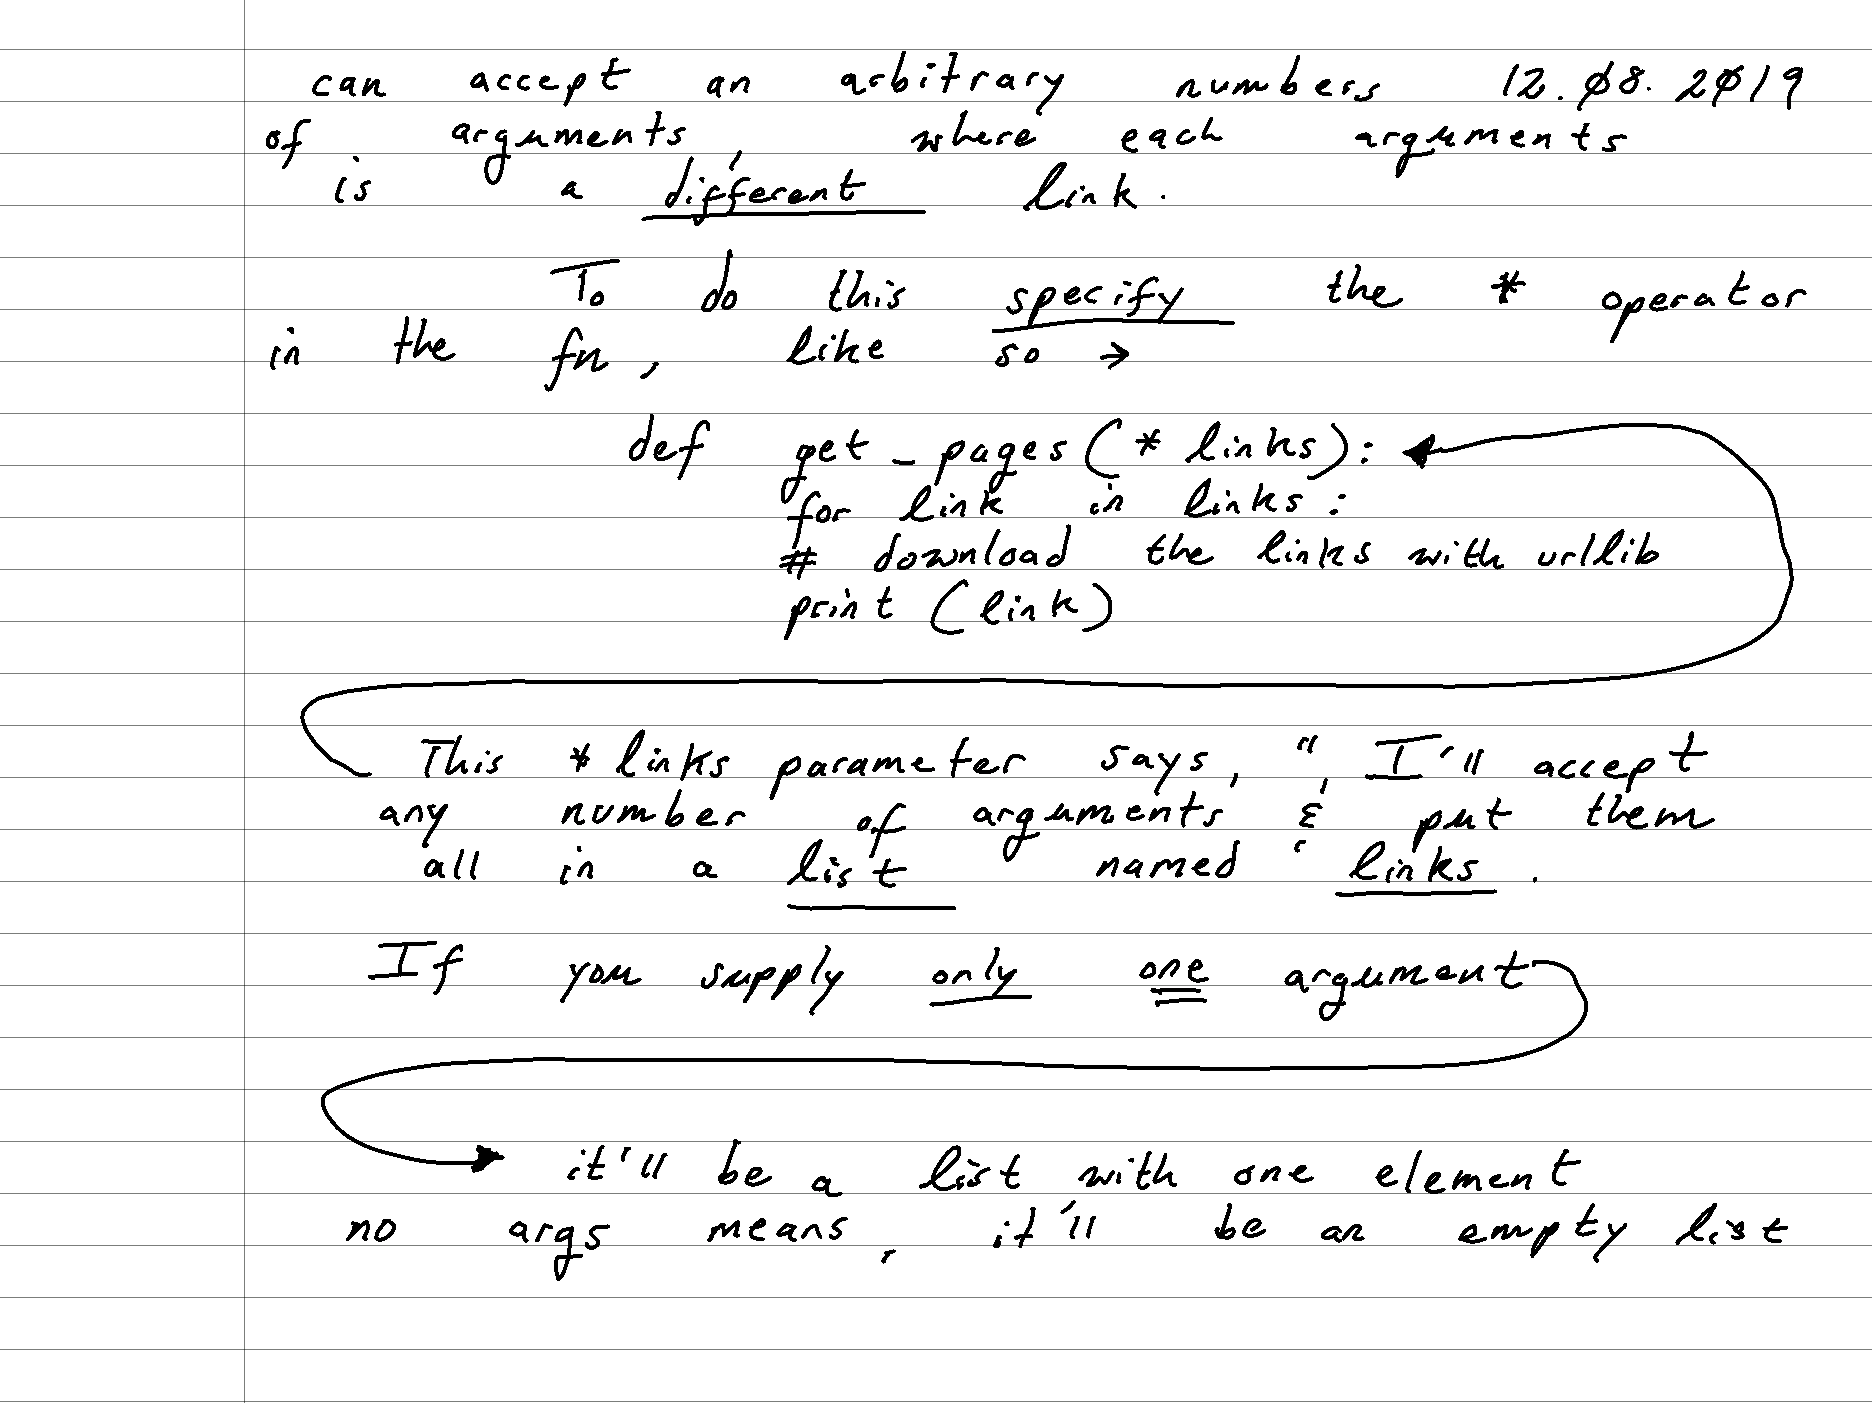 can accept an arbitrary numbers 12.08.2019
of arguments, where each arguments
is a different link.
To do this specify the * operator
in the fn, like so →
def get_pages(* links):
for link in links:
# download the links with urllib
print (link)
This *links parameter says, " I'll accept
any number of arguments & put them
all in a list named links.
If you supply only one argument
it'll be a list with one element
no args means, it'll be an empty list